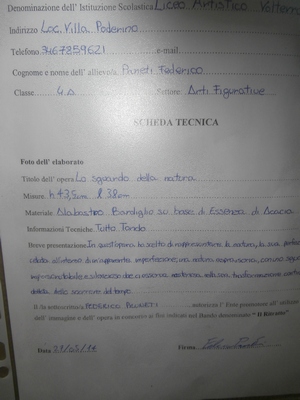 Denominazione dell'Istituzione Scolastica Liceo Artistico Volterra
Indirizzo Loc. Villa Poderino
Telefono 3467859621 e-mail
Cognome e nome dell'allievo/a Pareti Federico
Classe 4A Settore: Arti Figurative
SCHEDA TECNICA
Foto dell'elaborato
Titolo dell'opera Lo sguardo della natura
Misure h 43,5cm l 38cm
Materiale Alabastro Bardiglio su base di Essenza di Acacia
Informazioni Tecniche Tutto Tondo
Breve presentazione In quest'opera ho scelto di rappresentare la natura, la sua
celata all'interno di un'apparente imperfezione; una natura
imprescindibile
dettata dallo scorrere del tempo
Il /la sottoscritto/a FEDERICO autorizza l' Ente promotore all' utilizzo
dell' immagine e dell' opera in concorso ai fini indicati nel Bando denominato " Il Ritratto"
Data Firma